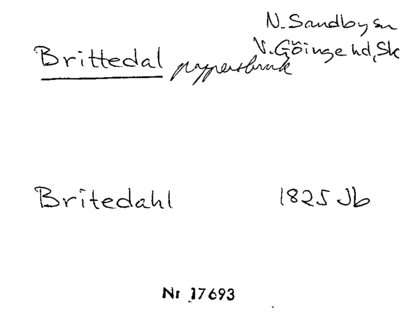 N. Sandby sn
Brittedal pappersbruk V. Göinge hd, Sk
Britedahl 1825 Jb
Nr 17693